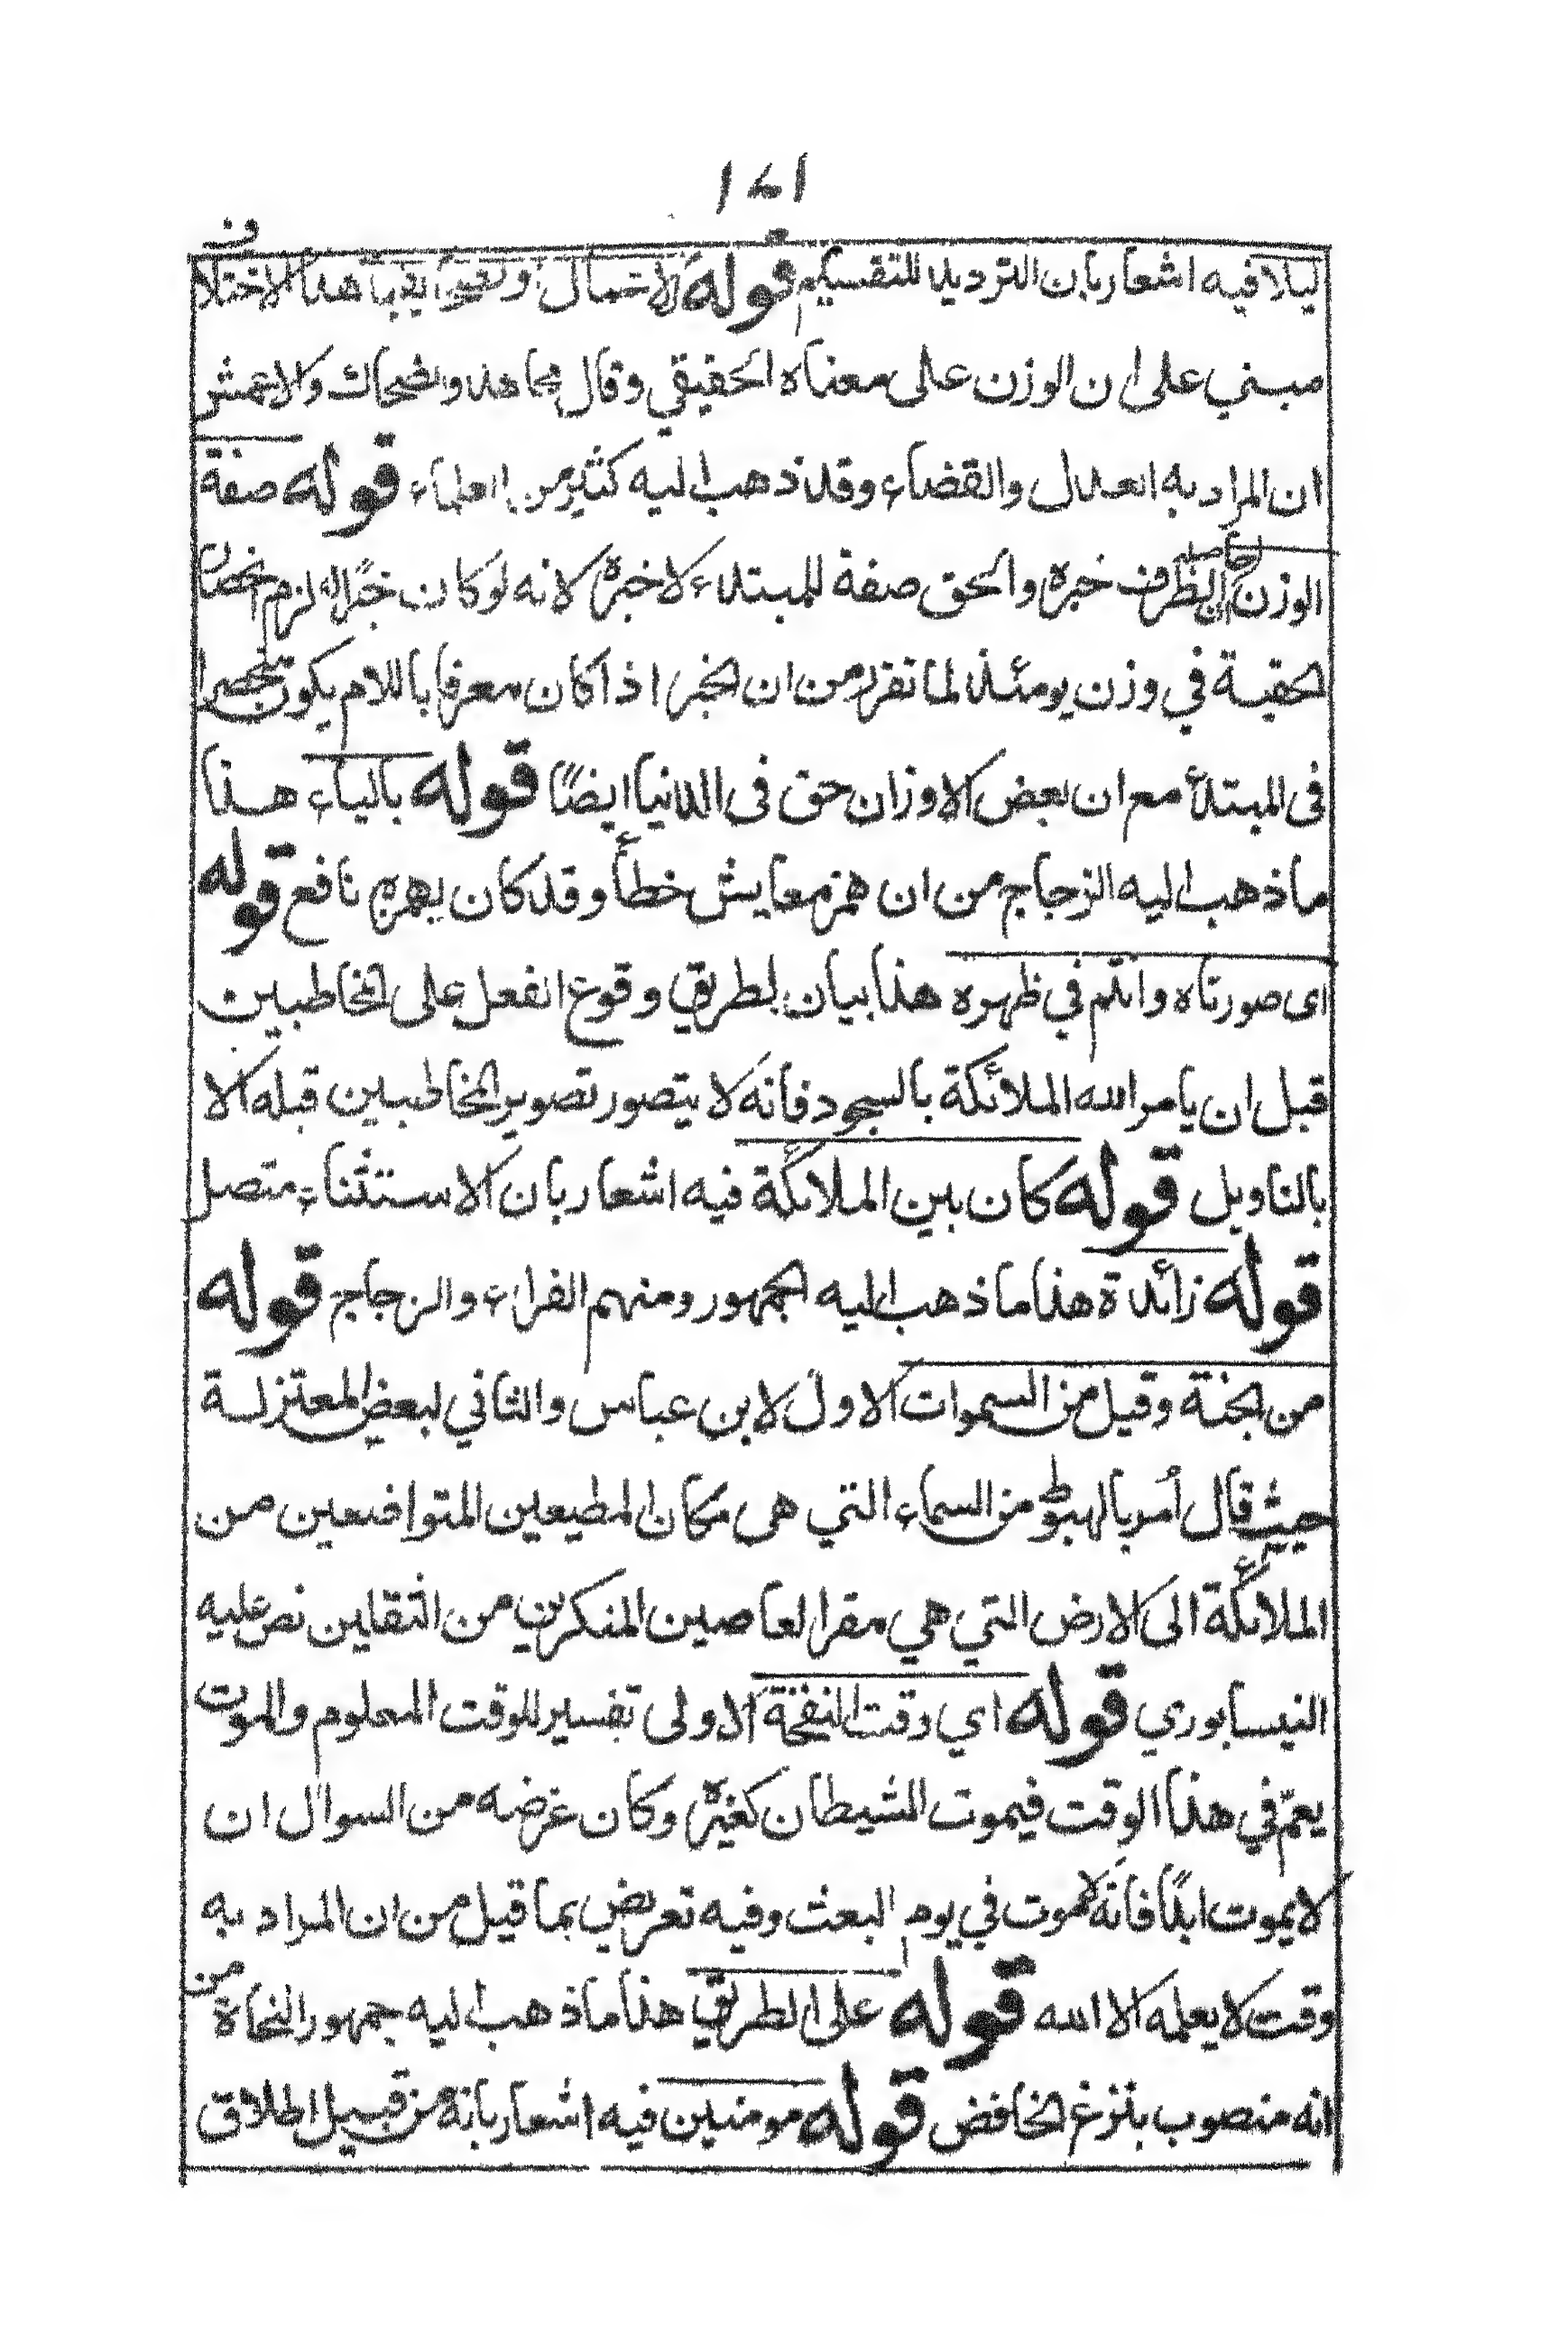 ۱۷۱
ليلا فيه اشعار بان الترديد للتقسيم قوله الاعمال هذا الاختلاف
مبني على ان الوزن على معناه الحقيقي وقال مجاهد والضحاك والاعمش
ان المراد به العدل والقضاء وقد ذهب اليه كثير من العلماء قوله صفة
الوزن اي الظرف خبره والحق صفة للمبتدء لا خبره لانه لو كان خبرًا له لزم انحصار
الحقية في وزن يومئذ لما تقرر من ان الخبر اذا كان معرفا باللام يكون منحصرا
فى المبتدأ مع ان بعض الاوزان حق فى الدنيا ايضًا قوله بالياء هذا
ما ذهب اليه الزجاج من ان همز معايش خطأ وقد كان يهمزه نافع قوله
اى صورناه وانتم في ظهره هذا بيان لطريق وقوع الفعل على المخاطبين
قبل ان يامر الله الملائكة بالسجود فانه لا يتصور تصوير المخاطبين قبله الا
بالتاويل قوله كان بين الملائكة فيه اشعار بان الاستثناء متصل
قوله زائدة هذا ما ذهب اليه الجمهور ومنهم الفراء والزجاج قوله
من الجنة وقيل من السموات الاول لابن عباس والثاني لبعض المعتزلة
حيث قال اُمر بالهبوط من السماء التي هى مكان المطيعين المتواضعين من
الملائكة الى الارض التي هي مقر العاصين المنكرين من الثقلين نص عليه
النيسابوري قوله اي وقت النفخة الاولى تفسير للوقت المعلوم والموت
يعمّ في هذا الوقت فيموت الشيطان كغيره وكان غرضه من السوال ان
لا يموت ابدًا فانه لا موت في يوم البعث وفيه تعريض بما قيل من ان المراد به
وقت لا يعلمه الا الله قوله على الطريق هذا ما ذهب اليه جمهور النحاة من
انه منصوب بنزع الخافض قوله مومنين فيه اشعار بانه من قبيل اطلاق